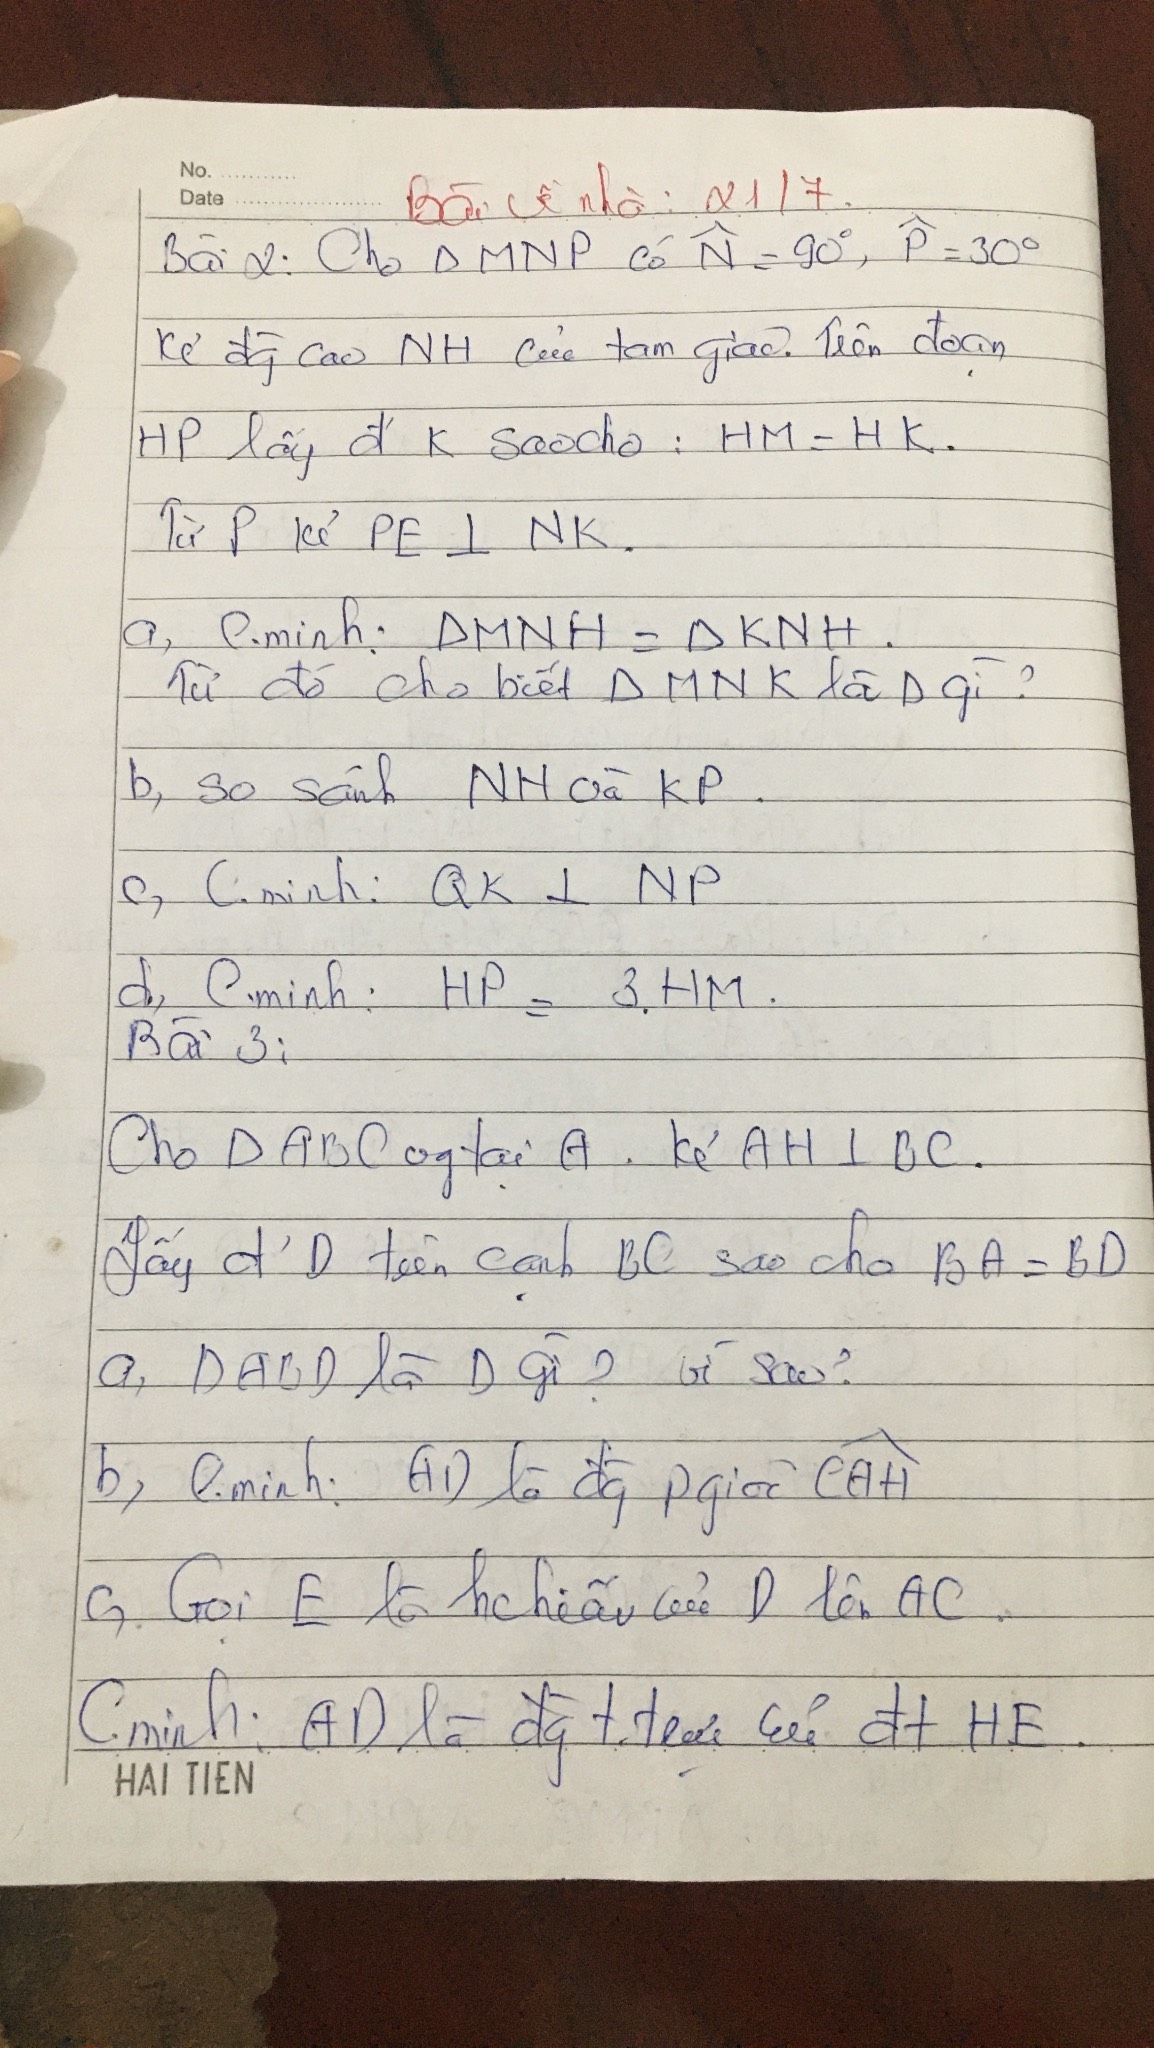 No. ............
Date ......................
Bài về nhà: 21/7.
Bài 2: Cho Δ MNP có N̂ = 90°, P̂ = 30°
Kẻ đg̀ cao NH của tam giác. Trên đoạn
HP lấy đ' K saocho : HM = HK.
Từ P kẻ PE ⊥ NK.
a, C.minh: ΔMNH = ΔKNH.
Từ đó cho biết Δ MNK là Δ gì ?
b, so sánh NH và KP.
c, C.minh: QK ⊥ NP
d, C.minh: HP = 3.HM.
Bài 3:
Cho Δ ABC vg tại A. Kẻ AH ⊥ BC.
Lấy đ' D trên cạnh BC sao cho BA = BD
a, ΔABD là Δ gì? Vì sao?
b, C.minh: AD là đg̀ pgiác CAH
c, Gọi E là hchiếu của D lên AC.
C.minh: AD là đg̀ t.trực của đt HE.
HAI TIEN